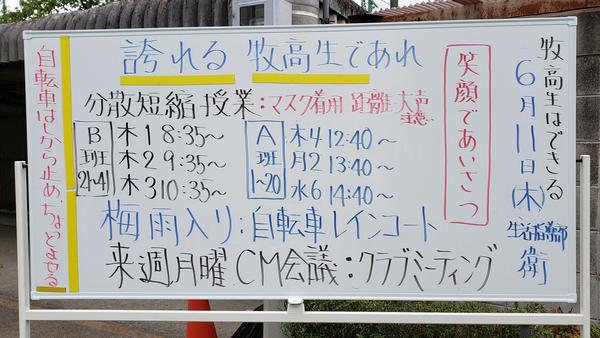 牧高生はできる
6月11日(木)
生活指導部
衛
笑顔であいさつ
誇れる 牧高生であれ
分散短縮授業:マスク着用 距離 大声
注意
B班 21~41
木1 8:35~
木2 9:35~
木3 10:35~
A班 1~20
木4 12:40~
月2 13:40~
水6 14:40~
梅雨入り:自転車レインコート
来週月曜CM会議:クラブミーティング
自転車はしから止め、ちょっとよせる